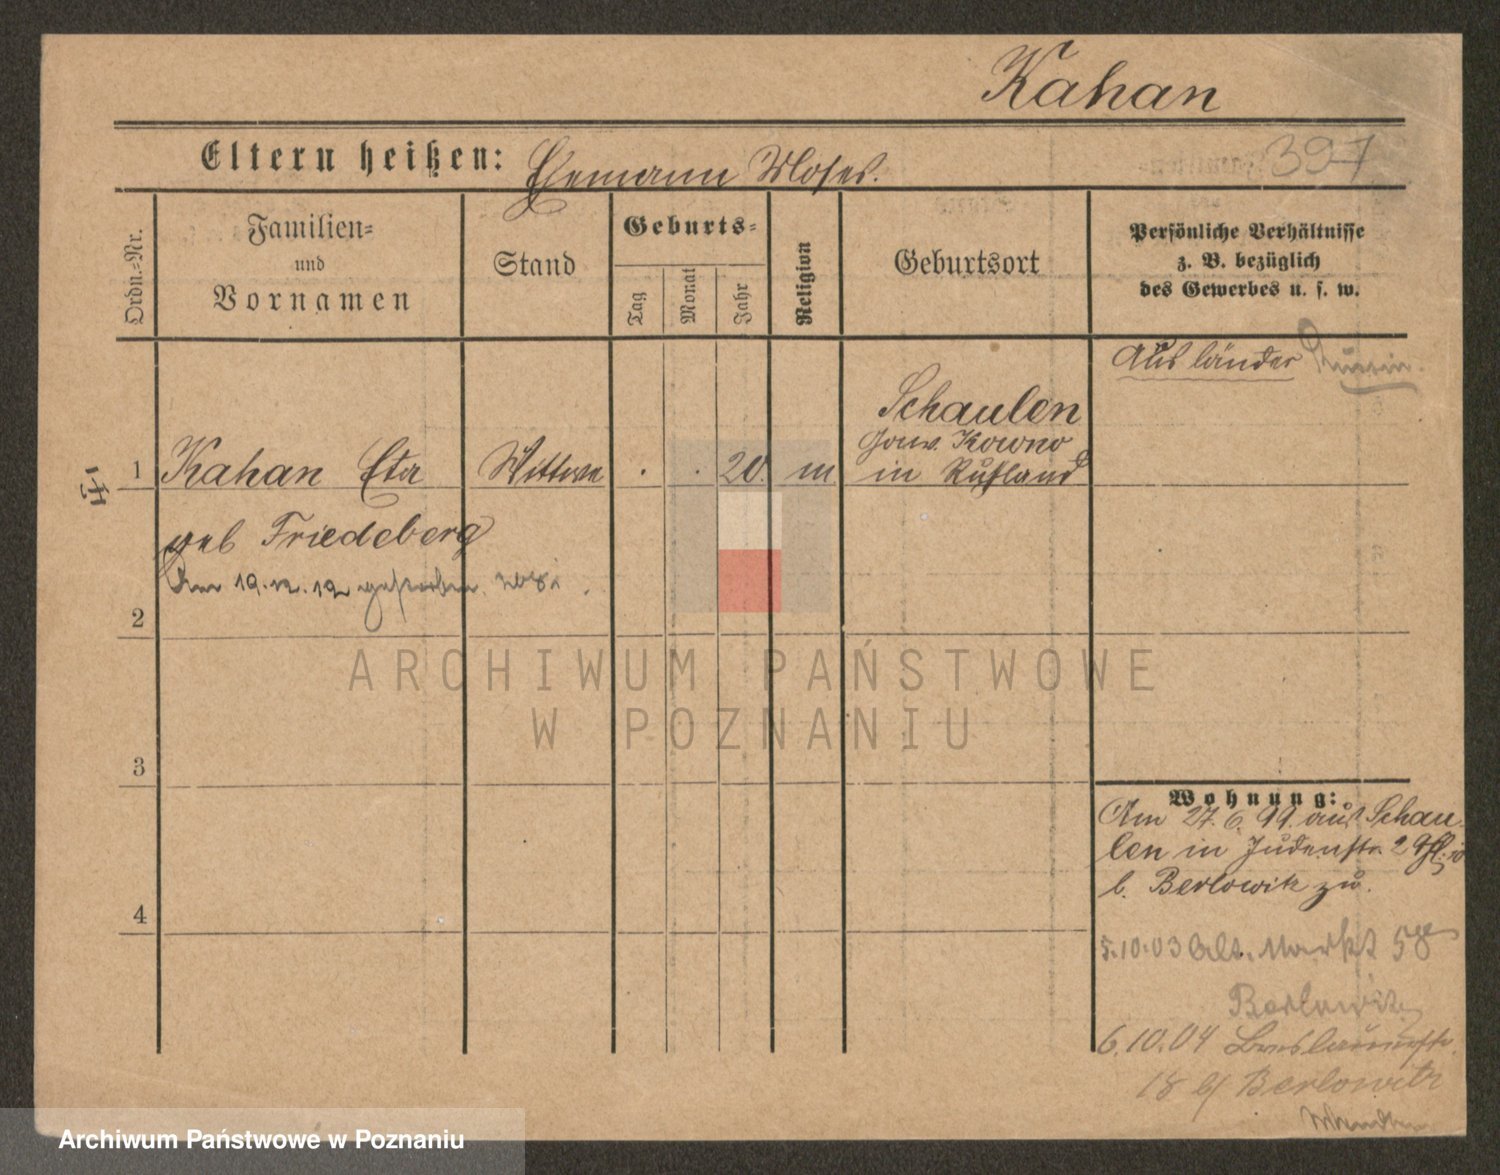 Kahan
Eltern heißen: Ehemann Moses.
397
Ordn.=Nr.
Familien=
und
Vornamen
Stand
Geburts=
Tag
Monat
Jahr
Religion
Geburtsort
Persönliche Verhältnisse
z. B. bezüglich
des Gewerbes u. s. w.
Ausländer Russin.
1 Kahan Eta Wittwe . . 20. m
Schaulen
Gouv. Kowno
in Rußland
geb Friedeberg
Am 19.12.12 gestorben.
2
3
4
ARCHIWUM PAŃSTWOWE
W POZNANIU
Wohnung:
Am 27.6.99. aus Schau-
len in Judenstr. 2
b. Berlowitz zu.
5.10.03 Alt. Markt 58
Berlowitz
6.10.04 Breslauerstr.
18 b/ Berlowitz
Archiwum Państwowe w Poznaniu